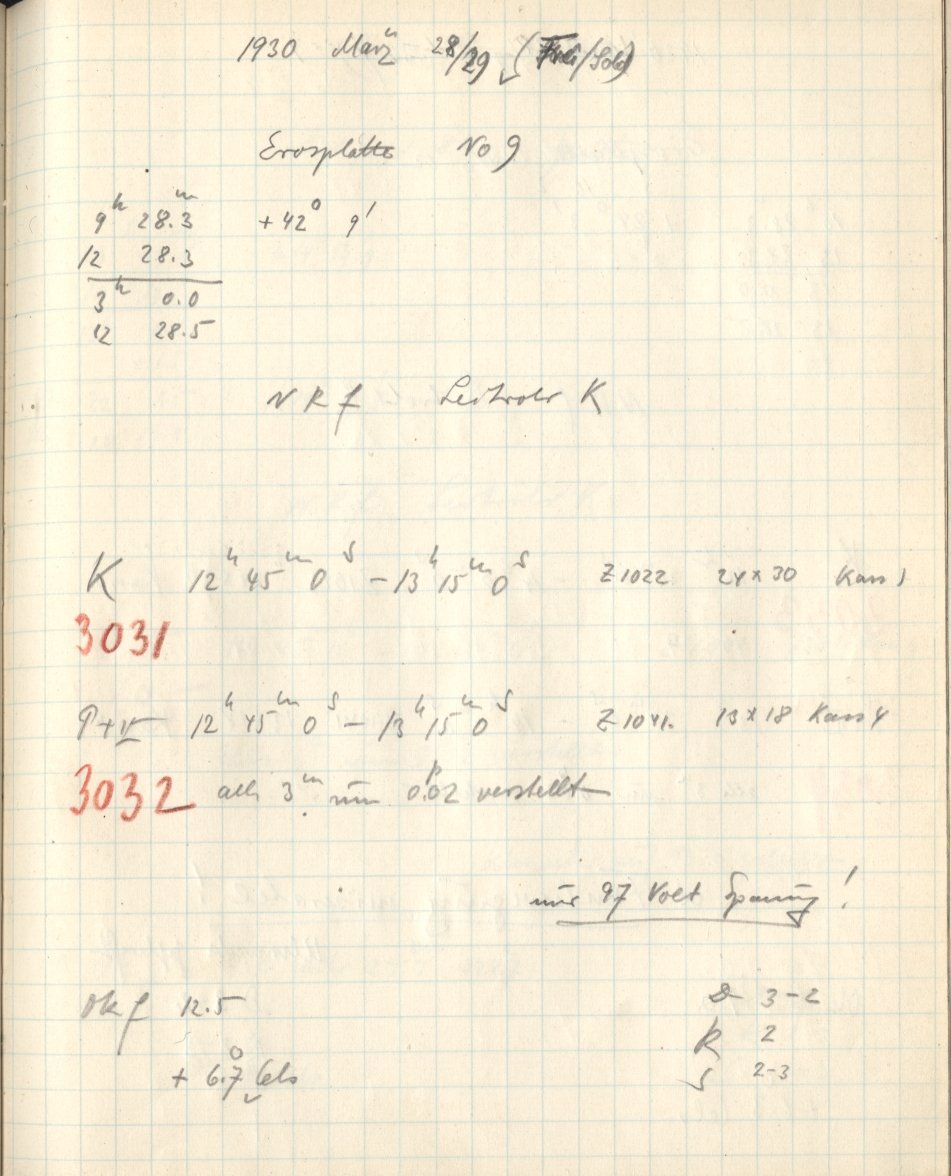 1930 März 28/29 (Frei/Sold)
Erosplatte No 9
9h 28.3m +42° 9'
12 28.3
3h 0.0
12 28.5
N R f Leitrohr K
K 12h 45m 0s – 13h 15m 0s Z 1022 24 x 30 Kass 1
3031
12h 45m 0s – 13h 15m 0s Z 1041. 13 x 18 Kass 4
3032 alle 3m um 0.02 verstellt
nur 97 Volt Spanung!
Okf 12.5 D 3–2
R 2
+ 6.7° Cels S 2–3